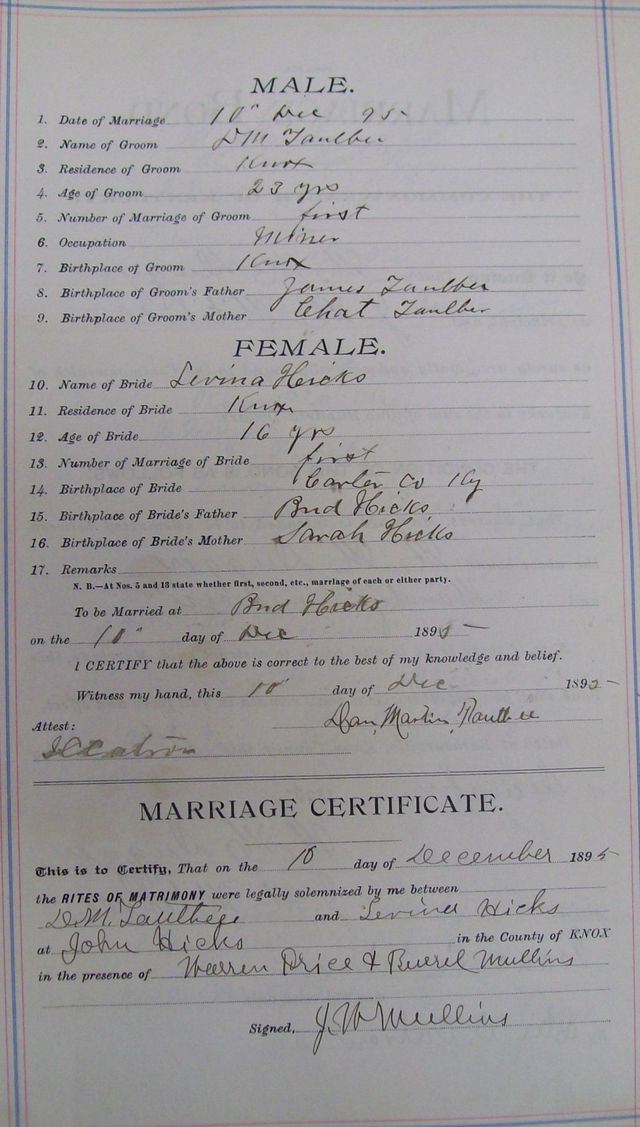 MALE.
1. Date of Marriage 10" Dec 95
2. Name of Groom DM Faulber
3. Residence of Groom Knox
4. Age of Groom 23 yrs
5. Number of Marriage of Groom first
6. Occupation Miner
7. Birthplace of Groom Knox
8. Birthplace of Groom's Father James Faulber
9. Birthplace of Groom's Mother Chat Faulber
FEMALE.
10. Name of Bride Levina Hicks
11. Residence of Bride Knox
12. Age of Bride 16 yrs
13. Number of Marriage of Bride first
14. Birthplace of Bride Carter Co Ky
15. Birthplace of Bride's Father Bud Hicks
16. Birthplace of Bride's Mother Sarah Hicks
17. Remarks
N. B.—At Nos. 5 and 13 state whether first, second, etc., marriage of each or either party.
To be Married at Bud Hicks
on the 10" day of Dec 1895
I CERTIFY that the above is correct to the best of my knowledge and belief.
Witness my hand, this 10" day of Dec 1895
Attest: Dan, Martin,
MARRIAGE CERTIFICATE.
This is to Certify, That on the 10 day of December 1895
the RITES OF MATRIMONY were legally solemnized by me between
D.M. and Levina Hicks
at John Hicks in the County of KNOX
in the presence of Warren Price & Burrel Mullins
Signed, J. W Mullins